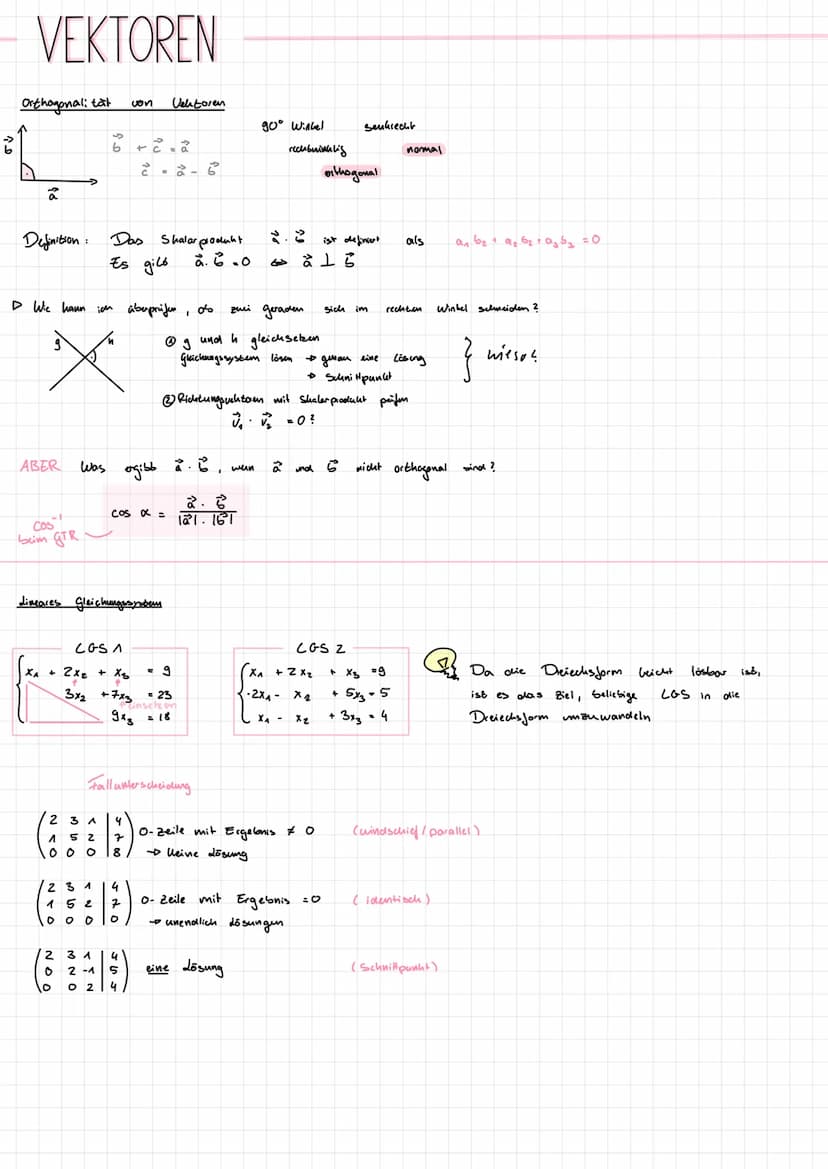 VEKTOREN
Orthogonalität von Vektoren
b⃗
a⃗
b⃗ + c⃗ = a⃗
c⃗ = a⃗ - b⃗
90° Winkel senkrecht
rechtwinklig normal
orthogonal
Definition: Das Skalarprodukt a⃗ · b⃗ ist definiert als a₁ b₂ + a₂ b₂ + a₃ b₃ = 0
Es gilt a⃗ · b⃗ = 0 ⇔ a⃗ ⊥ b⃗
▷ Wie kann ich überprüfen, ob zwei geraden sich im rechten Winkel schneiden?
g h
① g und h gleichsetzen
Gleichungssystem lösen → genau eine Lösung
→ Schnittpunkt
} wieso?
② Richtungsvektoren mit Skalarprodukt prüfen
v⃗₁ · v⃗₂ = 0?
ABER Was ergibt a⃗ · b⃗, wenn a⃗ und b⃗ nicht orthogonal sind?
cos α = a⃗ · b⃗ / |a⃗| · |b⃗|
cos⁻¹
beim GTR
Lineares Gleichungssystem
LGS 1
x₁ + 2x₂ + x₃ = 9
3x₂ + 7x₃ = 23
einsetzen
9x₃ = 18
LGS 2
x₁ + 2x₂ + x₃ = 9
-2x₁ - x₂ + 5x₃ = 5
x₁ - x₂ + 3x₃ = 4
Da die Dreiecksform leicht lösbar ist,
ist es das Ziel, beliebige LGS in die
Dreiecksform umzuwandeln
Fallunterscheidung
2 3 1 | 4
1 5 2 | 7
0 0 0 | 8
0-Zeile mit Ergebnis ≠ 0 (windschief / parallel)
→ keine Lösung
2 3 1 | 4
1 5 2 | 7
0 0 0 | 0
0-Zeile mit Ergebnis = 0 (identisch)
→ unendlich Lösungen
2 3 1 | 4
0 2 -1 | 5
0 0 2 | 4
eine Lösung (Schnittpunkt)